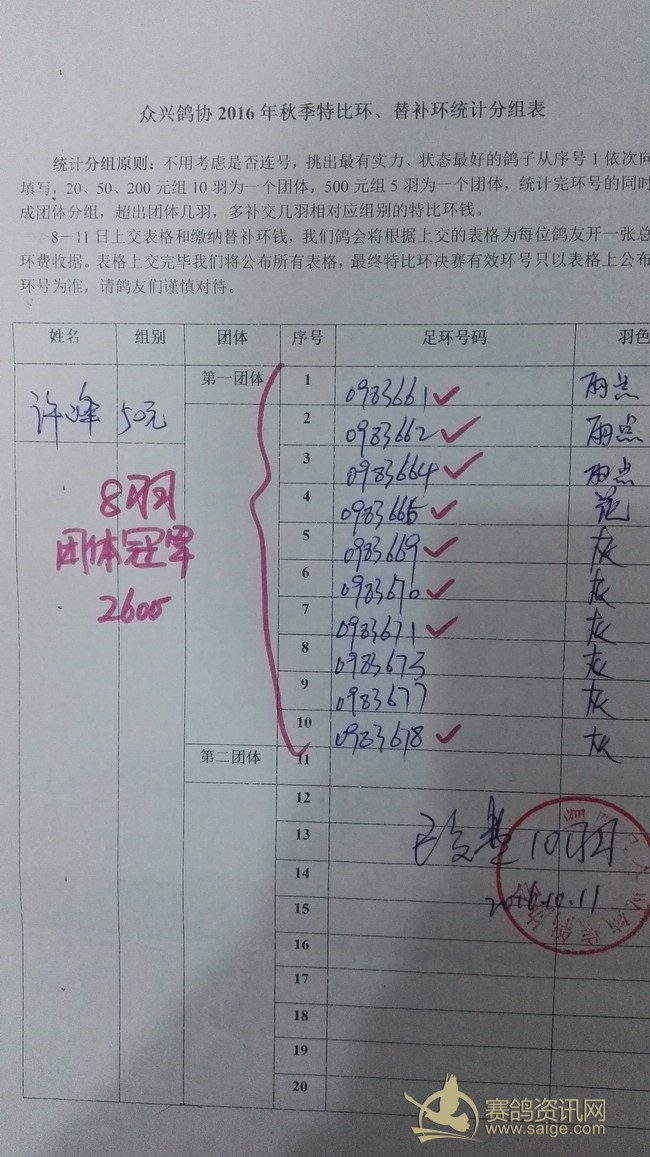 众兴鸽协 2016 年秋季特比环、替补环统计分组表
统计分组原则：不用考虑是否连号，挑出最有实力、状态最好的鸽子从序号 1 依次向
填写，20、50、200 元组 10 羽为一个团体，500 元组 5 羽为一个团体，统计完环号的同时
成团体分组，超出团体几羽，多补交几羽相对应组别的特比环钱。
8－11 日上交表格和缴纳替补环钱，我们鸽会将根据上交的表格为每位鸽友开一张总
环费收据。表格上交完毕我们将公布所有表格，最终特比环决赛有效环号只以表格上公布
环号为准，请鸽友们谨慎对待。
姓名 组别 团体 序号 足环号码 羽色
许峰 50元 第一团体 1 0983661 ✓ 雨点
2 0983662 ✓ 雨点
3 0983664 ✓ 雨点
4 0983665 ✓ 花
5 0983669 ✓ 灰
6 0983670 ✓ 灰
7 0983671 ✓ 灰
8 0983673 灰
9 0983677 灰
10 0983678 ✓ 灰
8羽
团体冠军
2600
第二团体 11
12
13
已交费 10羽
14
15
2016.10.11
16
17
18
19
20
赛鸽资讯网
www.saige.com